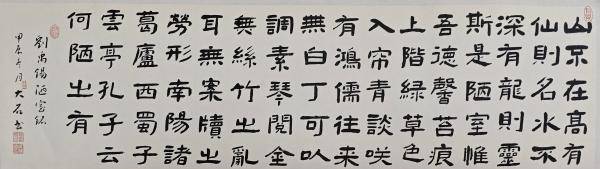 山不在高有
仙則名水不
深有龍則靈
斯是陋室惟
吾德馨苔痕
上階綠草色
入帘青談咲
有鴻儒往来
無白丁可㠯
調素琴閱金
無絲竹之亂
耳無案牘之
勞形南陽諸
葛廬西蜀子
雲亭孔子云
何陋之有
劉禹錫陋室銘
甲辰冬月大石书